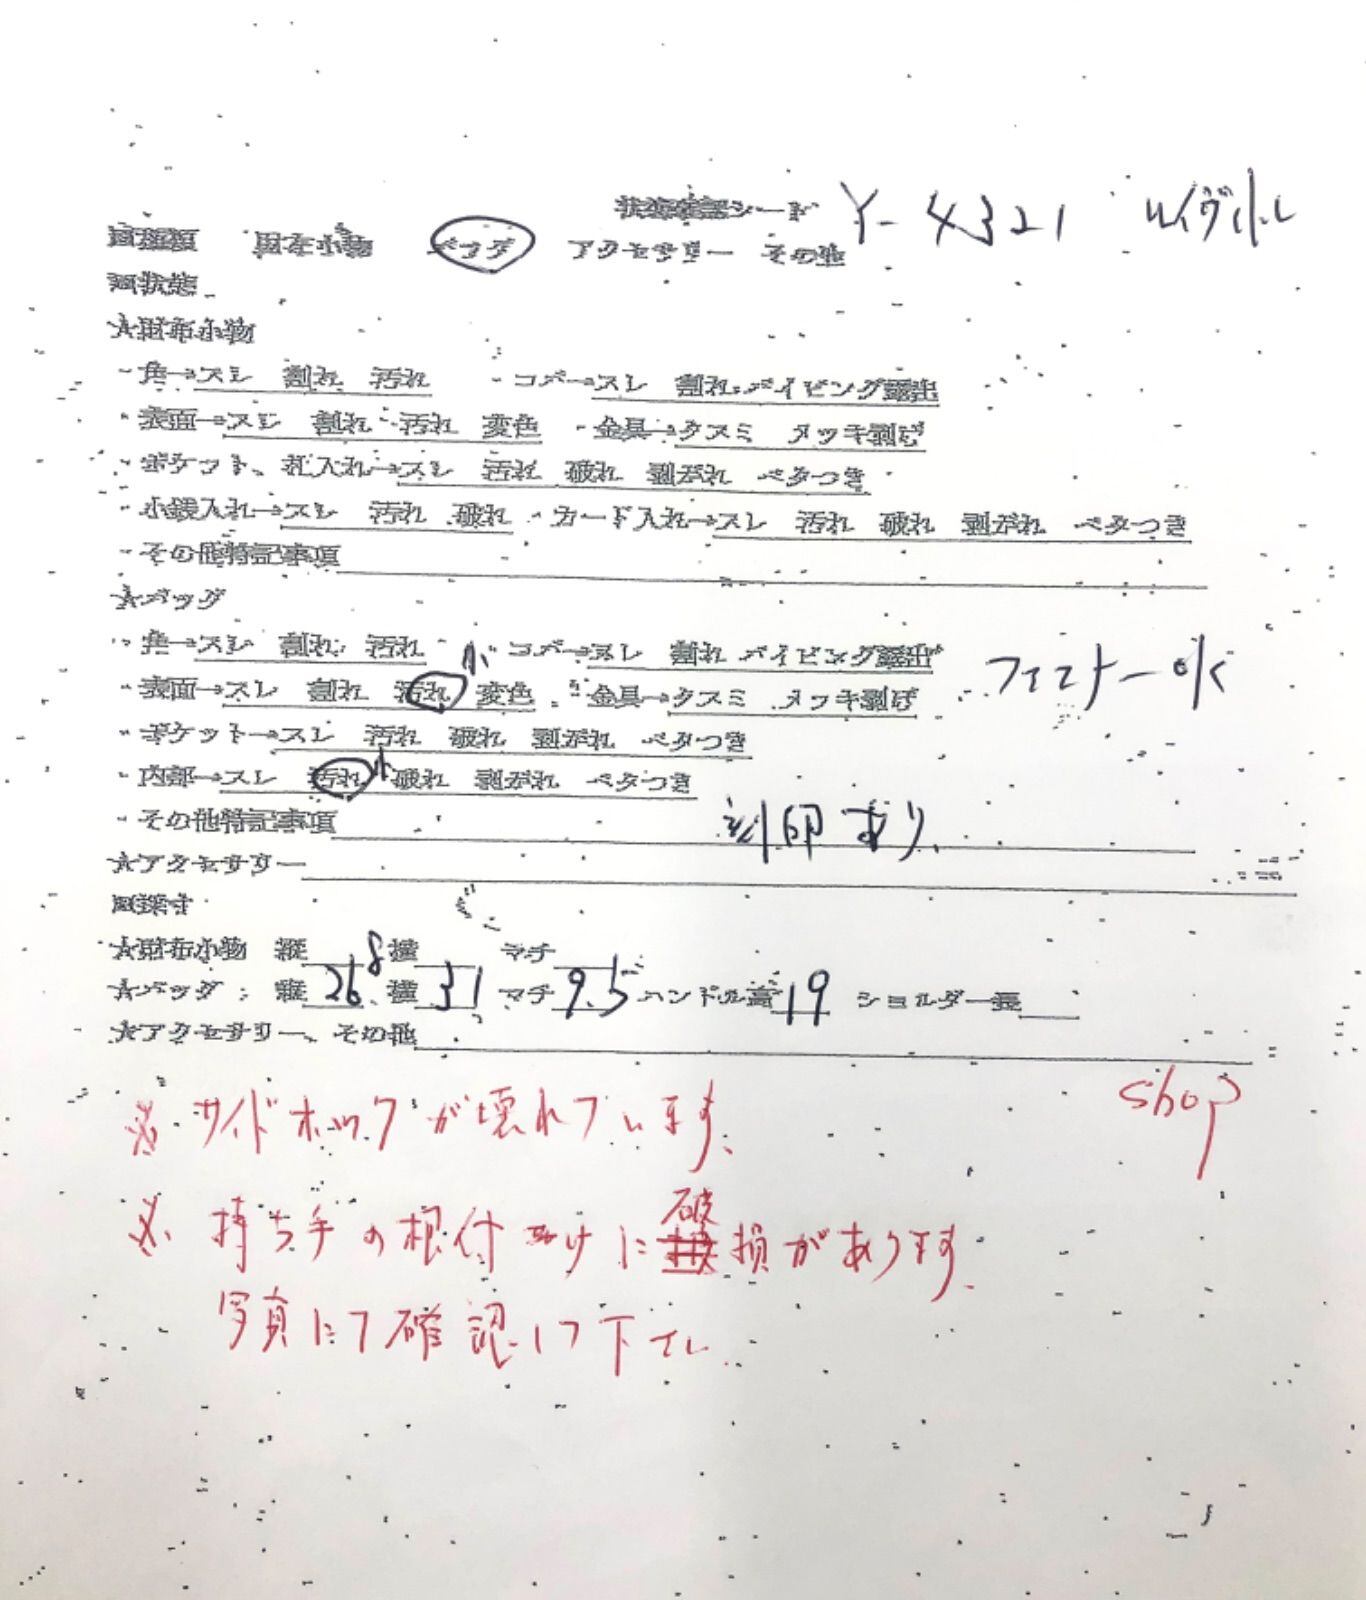 状態確認シート Y-4321 ルイヴィトン
□種類 財布小物 バッグ アクセサリー その他
□状態
★財布小物
・角→スレ 割れ 汚れ ・コバ→スレ 割れ パイピング露出
・表面→スレ 割れ 汚れ 変色 ・金具→クスミ メッキ剥げ
・ポケット、札入れ→スレ 汚れ 破れ 剥がれ ベタつき
・小銭入れ→スレ 汚れ 破れ ・カード入れ→スレ 汚れ 破れ 剥がれ ベタつき
・その他特記事項
★バッグ
・角→スレ 割れ 汚れ ・コバ→スレ 割れ パイピング露出
・表面→スレ 割れ 汚れ 小 変色 ・金具→クスミ メッキ剥げ ファスナーOK
・ポケット→スレ 汚れ 破れ 剥がれ ベタつき
・内部→スレ 汚れ 小 破れ 剥がれ ベタつき
・その他特記事項 刻印あり、
★アクセサリー
□採寸
★財布小物 縦 横 マチ
★バッグ：縦 26.8 横 31 マチ 9.5 ハンドル高 19 ショルダー長
★アクセサリー、その他
shop
※サイドホックが壊れています、
※持ち手の根付けに破損があります、
写真にて確認して下さい